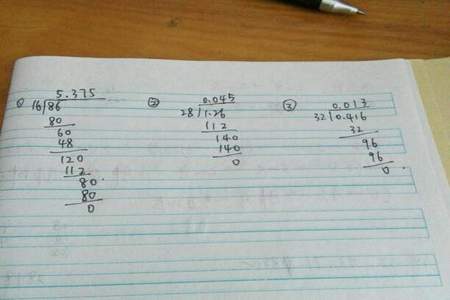 ① 5.375
16/86
80
60
48
120
112
80
80
0
② 0.045
28/1.26
112
140
140
0
③ 0.013
32/0.416
32
96
96
0